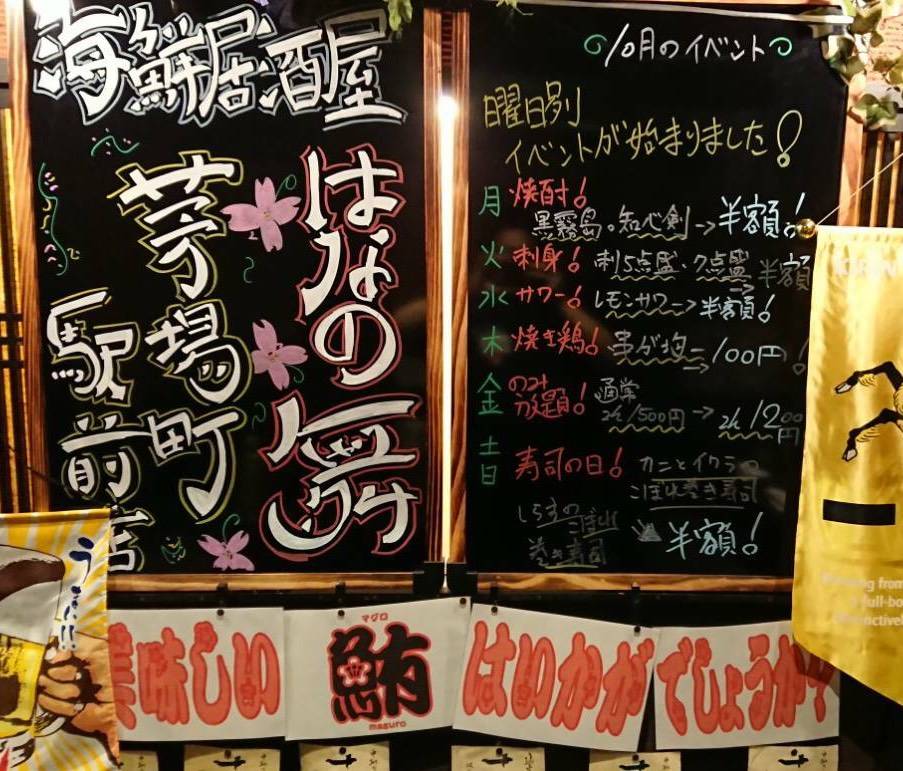 海鮮居酒屋
はなの舞
茅場町
駅前店
10月のイベント
曜日別
イベントが始まりました!
月 焼酎! 黒霧島・知心剣→半額!
火 刺身! 刺5点盛・7点盛→半額
水 サワー! レモンサワー→半額!
木 焼き鶏! 串が均一100円!
金 のみ放題! 通常
2h1500円→2h1200円
土日 寿司の日! カニとイクラの
こぼれ巻き寿司
しらすのこぼれ
巻き寿司
半額!
うまい!!
美味しい
マグロ
鮪
maguro
はいかが
でしょうか?
KIRIN